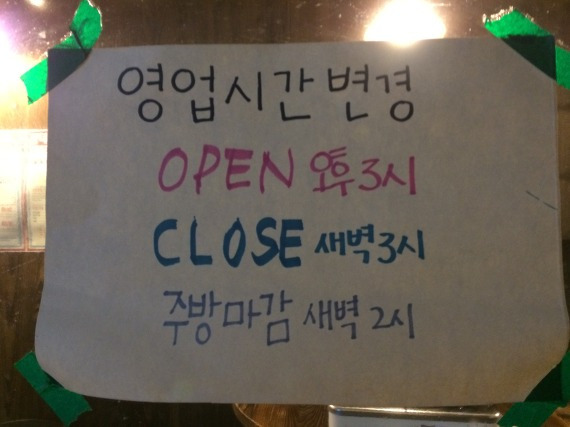 영업시간 변경
OPEN 오후 3시
CLOSE 새벽 3시
주방마감 새벽 2시